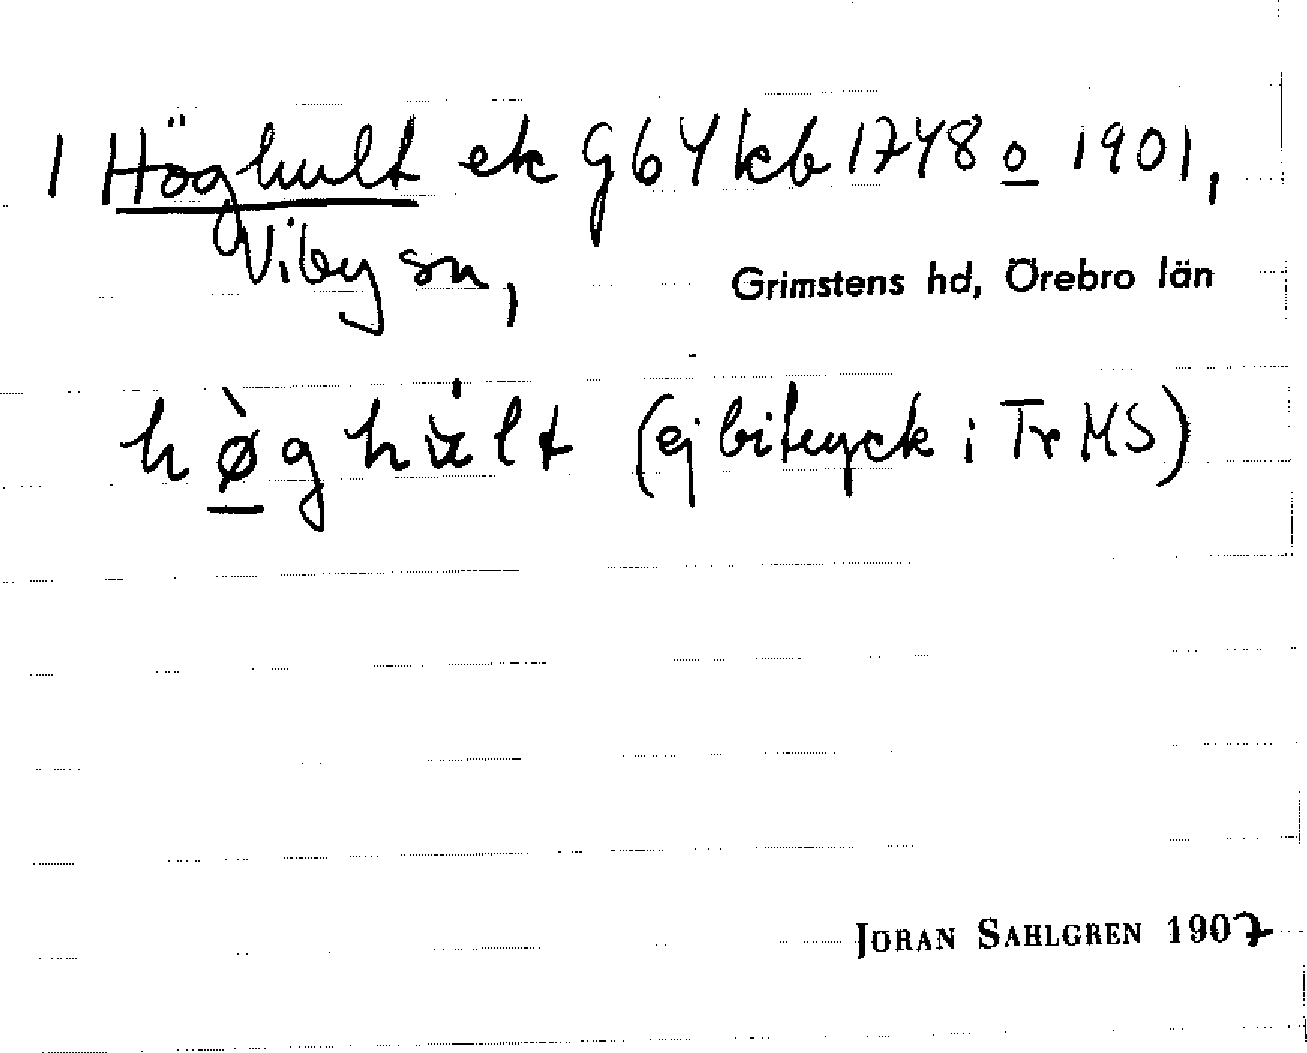 1 Höghult ek Gb4 kb 1748 o 1901,
Viby sn,
Grimstens hd, Örebro län
hø̀ghult (ej bitryck i Tr MS)
JÖRAN SAHLGREN 1907